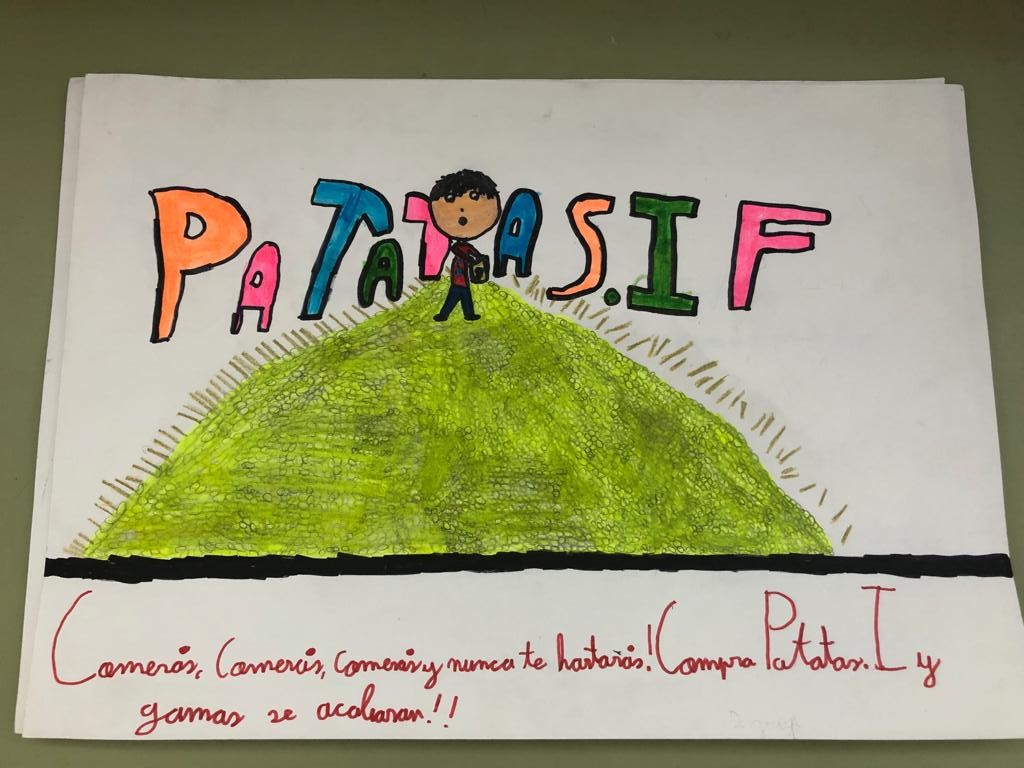 PATATAS.IF
Comerás, Comerás, Comerás y nunca te hartarás! Compra Patatas. I y
gamas se acabaran!!